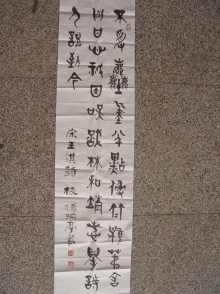 不受塵埃半點侵竹籬茅舍
自甘心祇因誤識林和靖惹得詩
人說到今
宋王淇詩